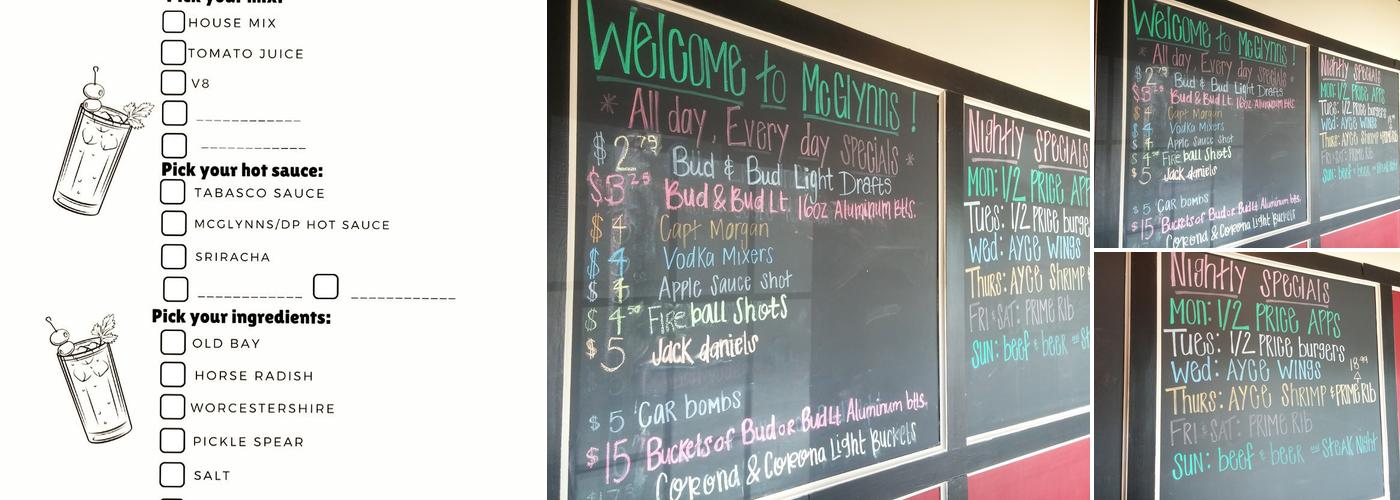 Pick your mix:
HOUSE MIX
TOMATO JUICE
V8
Pick your hot sauce:
TABASCO SAUCE
MCGLYNNS/DP HOT SAUCE
SRIRACHA
Pick your ingredients:
OLD BAY
HORSE RADISH
WORCESTERSHIRE
PICKLE SPEAR
SALT
Welcome to McGlynns!
* All day, Every day specials *
$2.75 Bud & Bud Light Drafts
$3.25 Bud & Bud Lt. 16oz Aluminum btls.
$4 Capt Morgan
$4 Vodka Mixers
$4 Apple Sauce Shot
$4.50 Fireball Shots
$5 Jack daniels
$5 Car bombs
$15 Buckets of Bud or Bud Lt Aluminum btls.
Corona & Corona Light Buckets
Nightly Specials
Mon: 1/2 PRICE APP
Tues: 1/2 PRICE burge
Wed: AYCE WINGS
Thurs: AYCE Shrimp &
FRI & SAT: PRIME RIB
SUN: beef & beer
Welcome to McGlynns!
* All day, Every day specials *
$2.75 Bud & Bud Light Drafts
$3.25 Bud & Bud Lt. 16oz Aluminum btls.
$4 Capt Morgan
$4 Vodka Mixers
$4 Apple Sauce Shot
$4.50 Fireball Shots
$5 Jack daniels
$5 Car bombs
$15 Buckets of Bud or Bud Lt Aluminum btls.
Corona & Corona Light Buckets
Nightly Specials
Mon: 1/2 PRICE APPS
Tues: 1/2 PRICE burgers
Wed: AYCE WINGS
Thurs: AYCE Shrimp
FRI & SAT: PRIME RIB
SUN: beef & beer
Nightly Specials
Mon: 1/2 PRICE APPS
Tues: 1/2 PRICE burgers
Wed: AYCE WINGS 18.99
Thurs: AYCE Shrimp & PRIME Rib
FRI & SAT: PRIME RIB
SUN: beef & beer or Steak Night